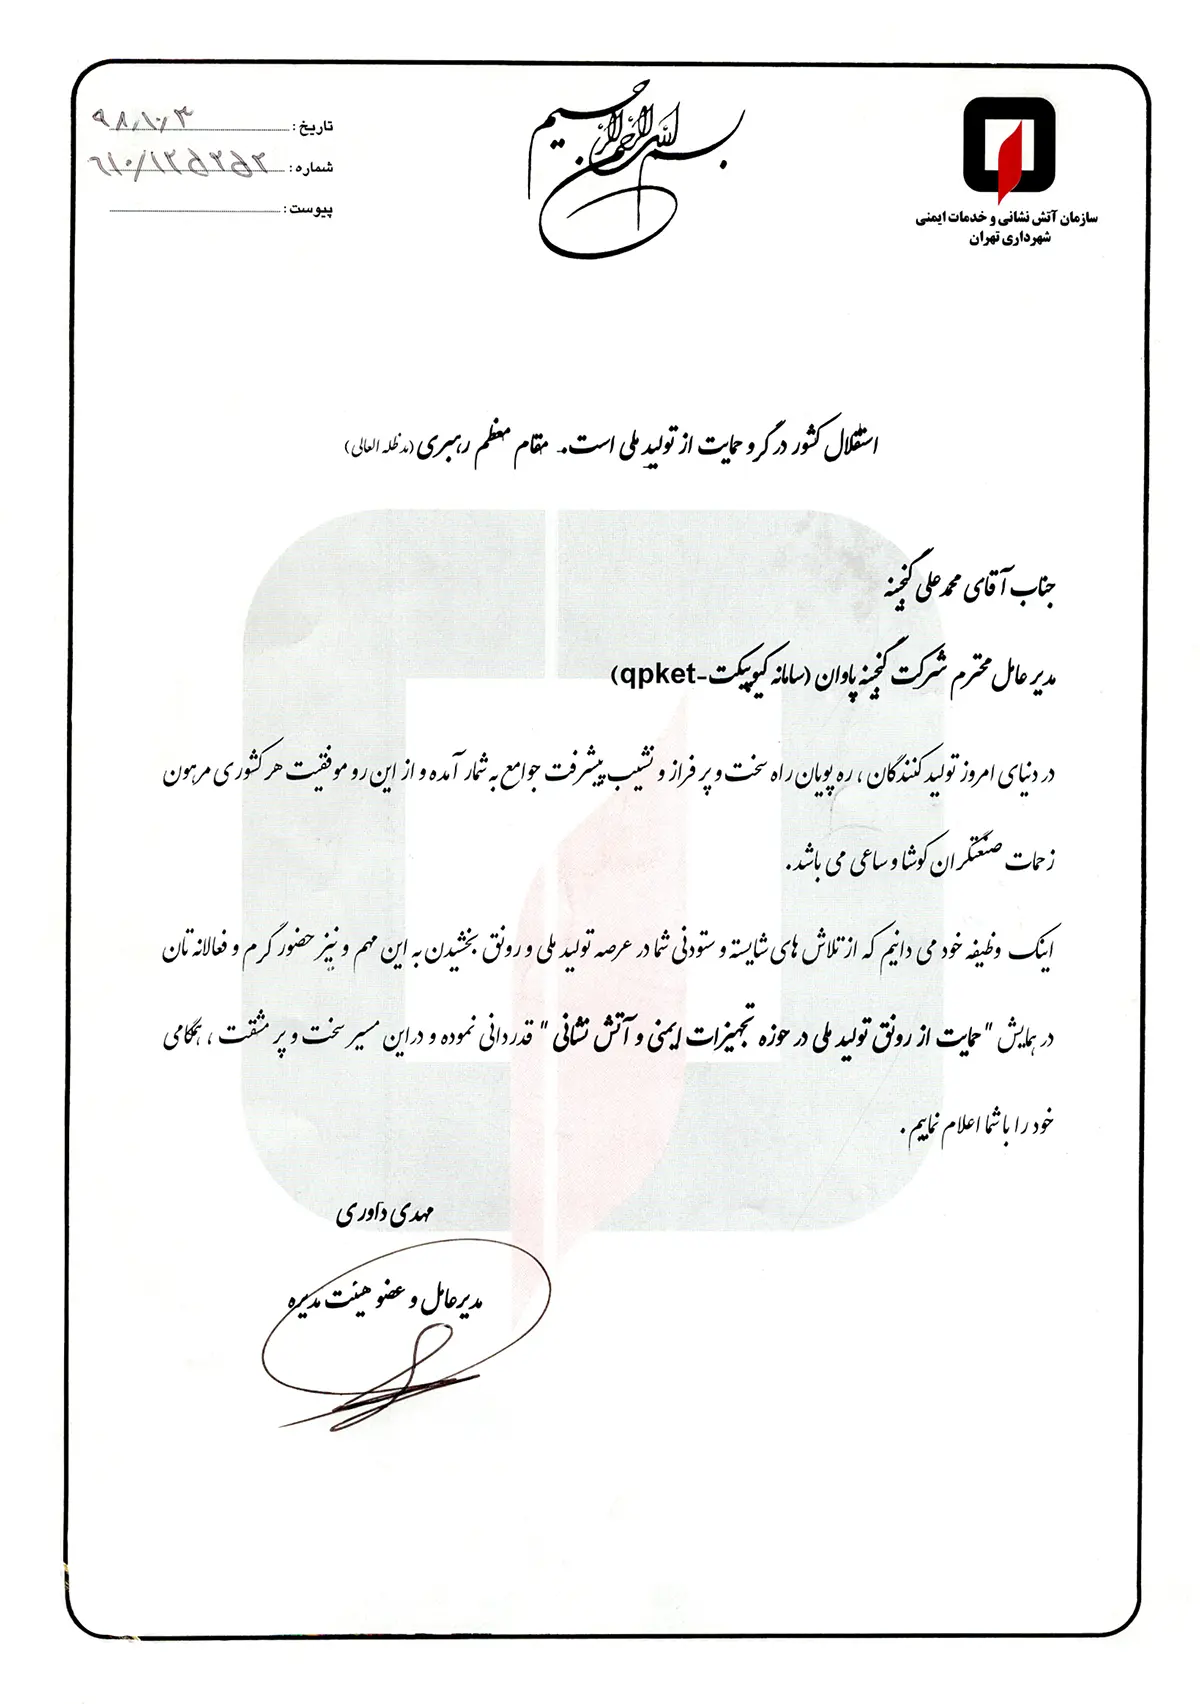 بسم الله الرحمن الرحیم
سازمان آتش نشانی و خدمات ایمنی
شهرداری تهران
تاریخ : ۹۸/۱۰/۳
شماره : ۶۱۰/۱۲۵۲۵۲
پیوست :
استقلال کشور در گرو حمایت از تولید ملی است. مقام معظم رهبری (مدظله العالی)
جناب آقای محمدعلی گنجینه
مدیر عامل محترم شرکت گنجینه پاوان (سامانه کیوپیکت-qpket)
در دنیای امروز تولید کنندگان ، ره پویان راه سخت و پر فراز و نشیب پیشرفت جوامع به شمار آمده و از این رو موفقیت هر کشوری مرهون
زحمات صنعتگران کوشا و ساعی می باشد .
اینک وظیفه خود می دانیم که از تلاش های شایسته و ستودنی شما در عرصه تولید ملی و رونق بخشیدن به این مهم و نیز حضور گرم و فعالانه تان
در همایش " حمایت از رونق تولید ملی در حوزه تجهیزات ایمنی و آتش نشانی " قدردانی نموده و در این مسیر سخت و پر مشقت ، همگامی
خود را با شما اعلام نماییم .
مهدی داوری
مدیرعامل و عضو هیئت مدیره